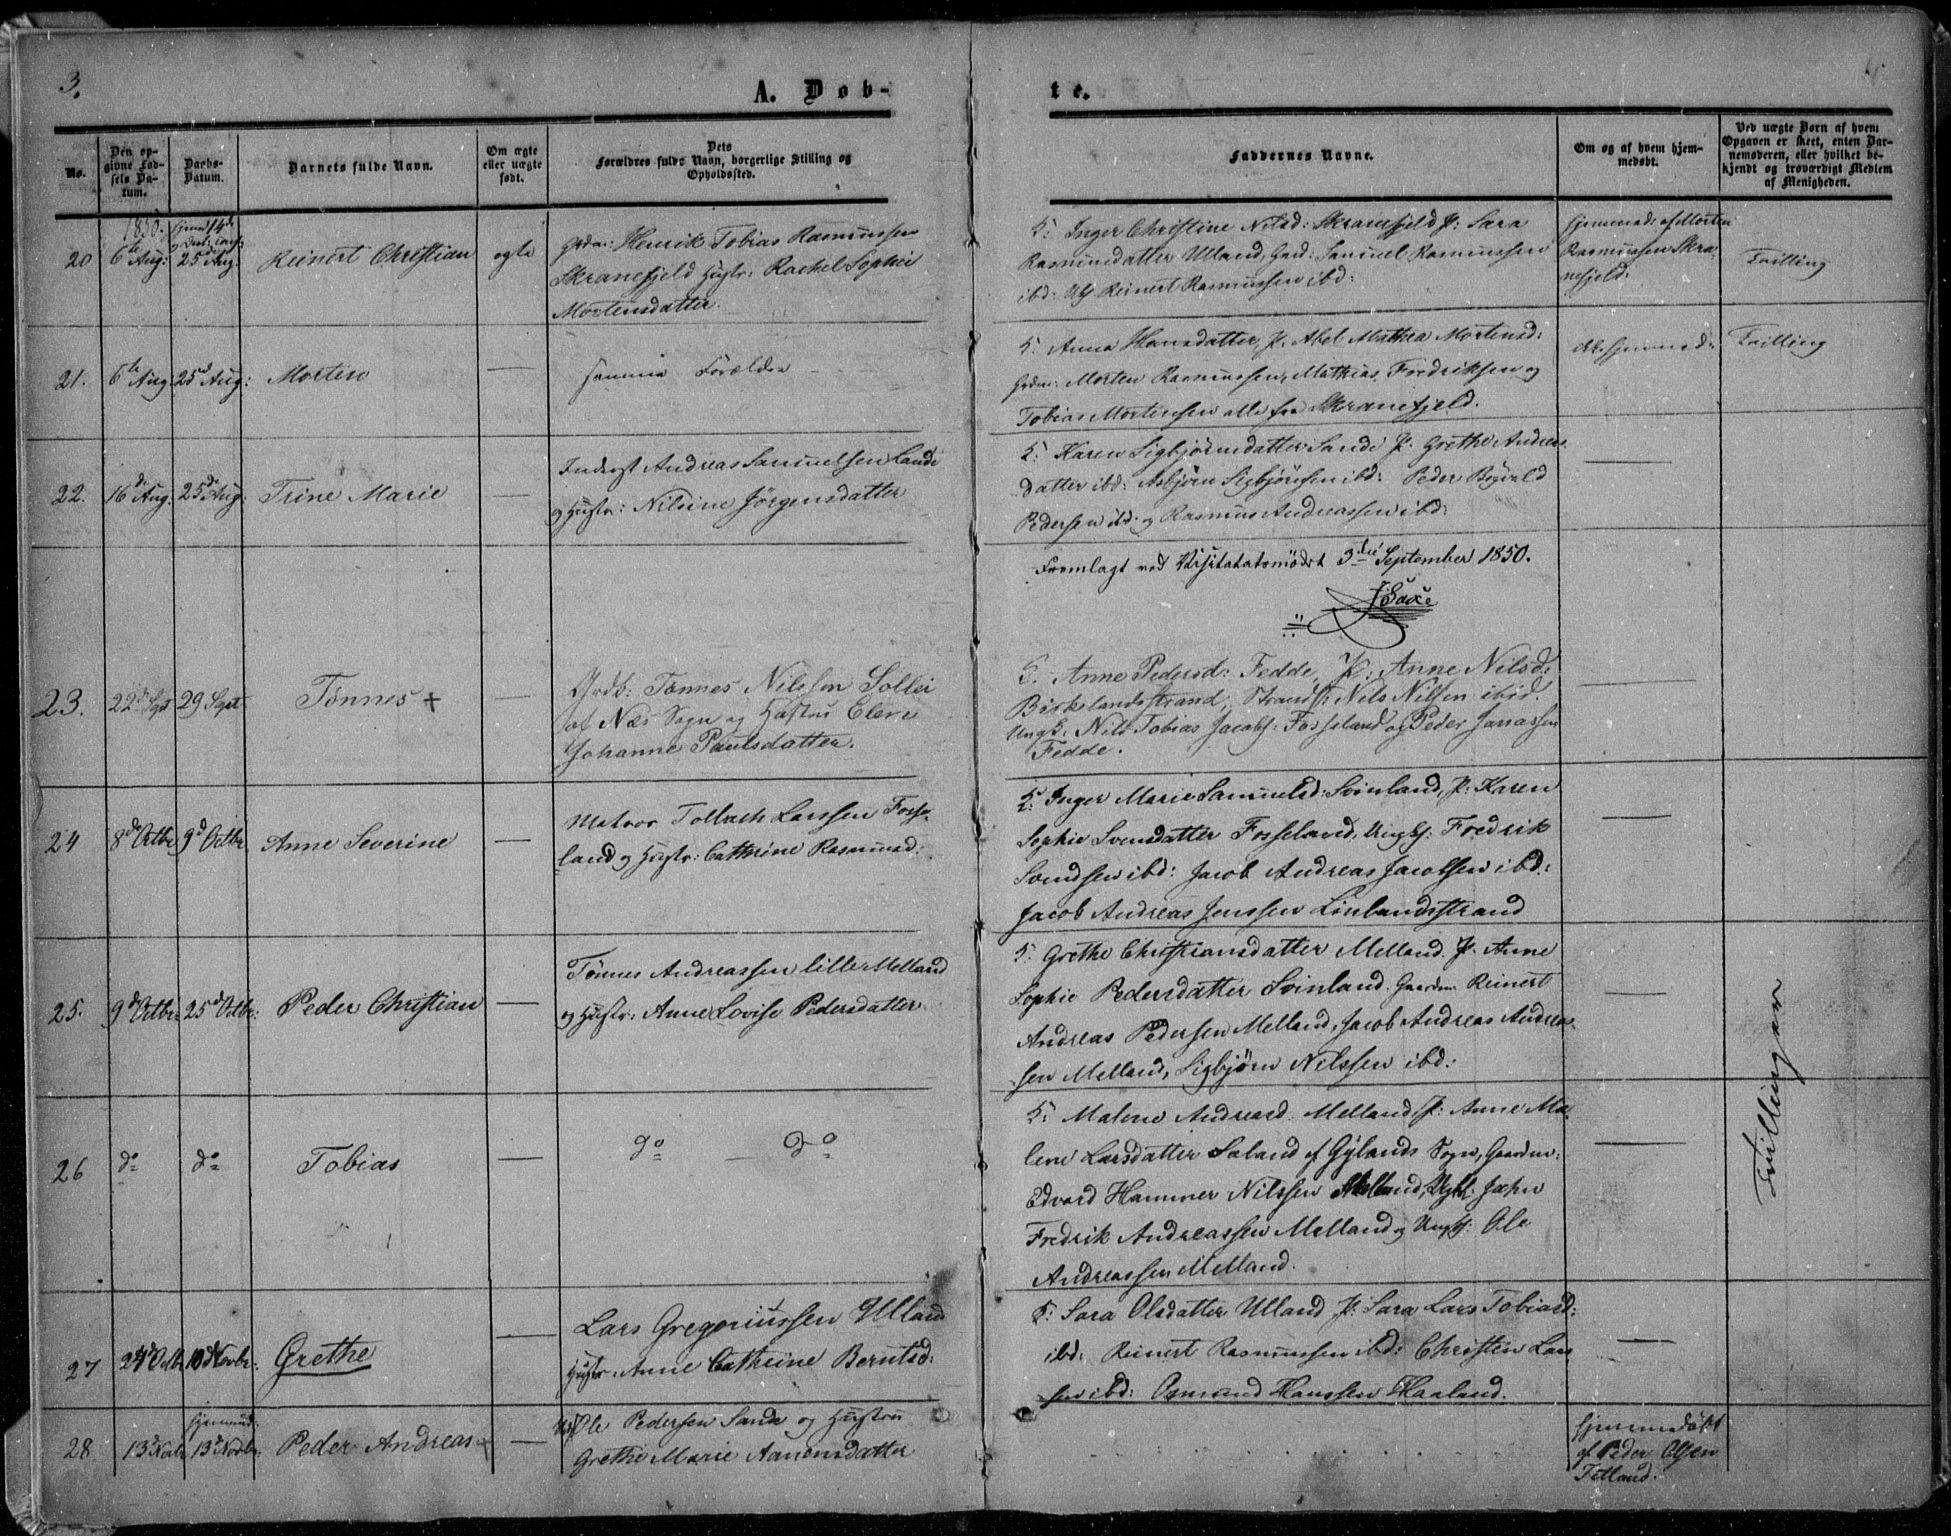 3.
A. Døb-
te.
No.
Den op-
givne Fød-
sels Da-
tum.
Daabs-
Datum.
Barnets fulde Navn.
Om ægte
eller uægte
født.
Dets
Forældres fulde Navn, borgerlige Stilling og
Opholdssted.
Faddernes Navne.
Om og af hvem hjem-
medøbt.
Ved uægte Børn af hvem
Opgaven er skeet, enten Bar-
nemoderen, eller hvilket be-
kjendt og troværdigt Medlem
af Menigheden.
1850.
20
6te Aug:
25d Aug:
Reinert Christian
ægte
Grdm: Henrik Tobias Rasmussen
Skranefjeld Hustr: Rachel Sophie
Mortensdatter.
F: Inger Christine Nilsd: Skranefjeld P: Sara
Rasmusdatter Ulland, Gard: Samuel Rasmussen
ibd: Reinert Rasmussen ibd:
Hjemmed: af Morten
Rasmussen Skra-
nefjeld.
Tvilling
21.
6te Aug:
25d Aug:
Morten
samme Forældre
F: Anna Hansdatter, P: Abel Mathea Mortensd:
Grdm: Morten Rasmussen, Mathias Fredriksen og
Tobias Mortensen alle fra Skranefjeld.
ikke hjemmed:
Tvilling
22.
16d Aug:
25d Aug:
Trine Marie
Inderst Andreas Samuelsen Sande
og Hustr: Nilsine Jörgensdatter
F: Karen Sigbjörnsdatter Sande P: Grethe Andreas
datter ibd: Asbjörn Sigbjörnsen ibd: Peder
Pedersen ibd: og Rasmus Andreassen ibd:
Fremlagt ved Visitatsmødet 3die September 1850.
23.
22de Sept
29 Sept
Tønnes +
Grdb: Tønnes Nilssen Sollei
af Næs Sogn og Hustru Elen
Johanne Paulsdatter.
F. Anne Pedersd: Fedde, P: Anne Nilsd:
Birkelandsstrand, Strands: Nils Nilsen ibid.
Ungk. Nils Tobias Jacobs: Fosseland og Peder Jonassen
Fedde.
24
8de Octbr
9d Octbr
Anne Severine
Matros Tollach Larssen Fosse-
land og Hustr: Cathrine Rasmusd:
F: Inger Marie Samuelsd: Svinland, P: Karen
Sophie Svensdatter Fosseland, Ungk: Fredrik
Svendsen ibd: Jacob Andreas Jacobsen ibd:
Jacob Andreas Jenssen Linlandsstrand
25.
9d Octbr:
25d Octbr:
Peder Christian
Tönnes Andreassen lille Melland
og Hustr: Anne Lovise Pedersdatter
F: Grethe Christiansdatter Melland. P: Anne
Sophie Pedersdatter Svinland. Gaardm: Reinert
Andreas Pedersen Melland, Jacob Andreas Andreas-
sen Melland, Sigbjørn Nilssen ibd:
26
do
do
Tobias
do — do
F: Malene Andreasd. Melland, P: Anne Ma-
lene Larsdatter Saland af Gylands Sogn, Gaardm:
Edvard Hammer Nilssen Melland, Ugk: Jahn
Fredrik Andreassen Melland og Ungk: Ole
Andreassen Melland.
Tvillinger
27
24d Octb
10d Novbr:
Grethe
Lars Gregoriussen Ulland
Hustr: Anne Cathrine Berntsd:
F: Sara Olsdatter Ulland P: Sara Lars Tobiasd:
ibd: Reinert Rasmussen ibd: Christen Lars
sen ibd: Osmund Hanssen Haaland.
28
13d Novb
hjemmd:
13d Novbr.
Peder Andreas
Ole Pedersen Sande og Hustru
Grethe Marie Aanensdatter
hjemmedöbt
af Peder Olsen
Fitland.